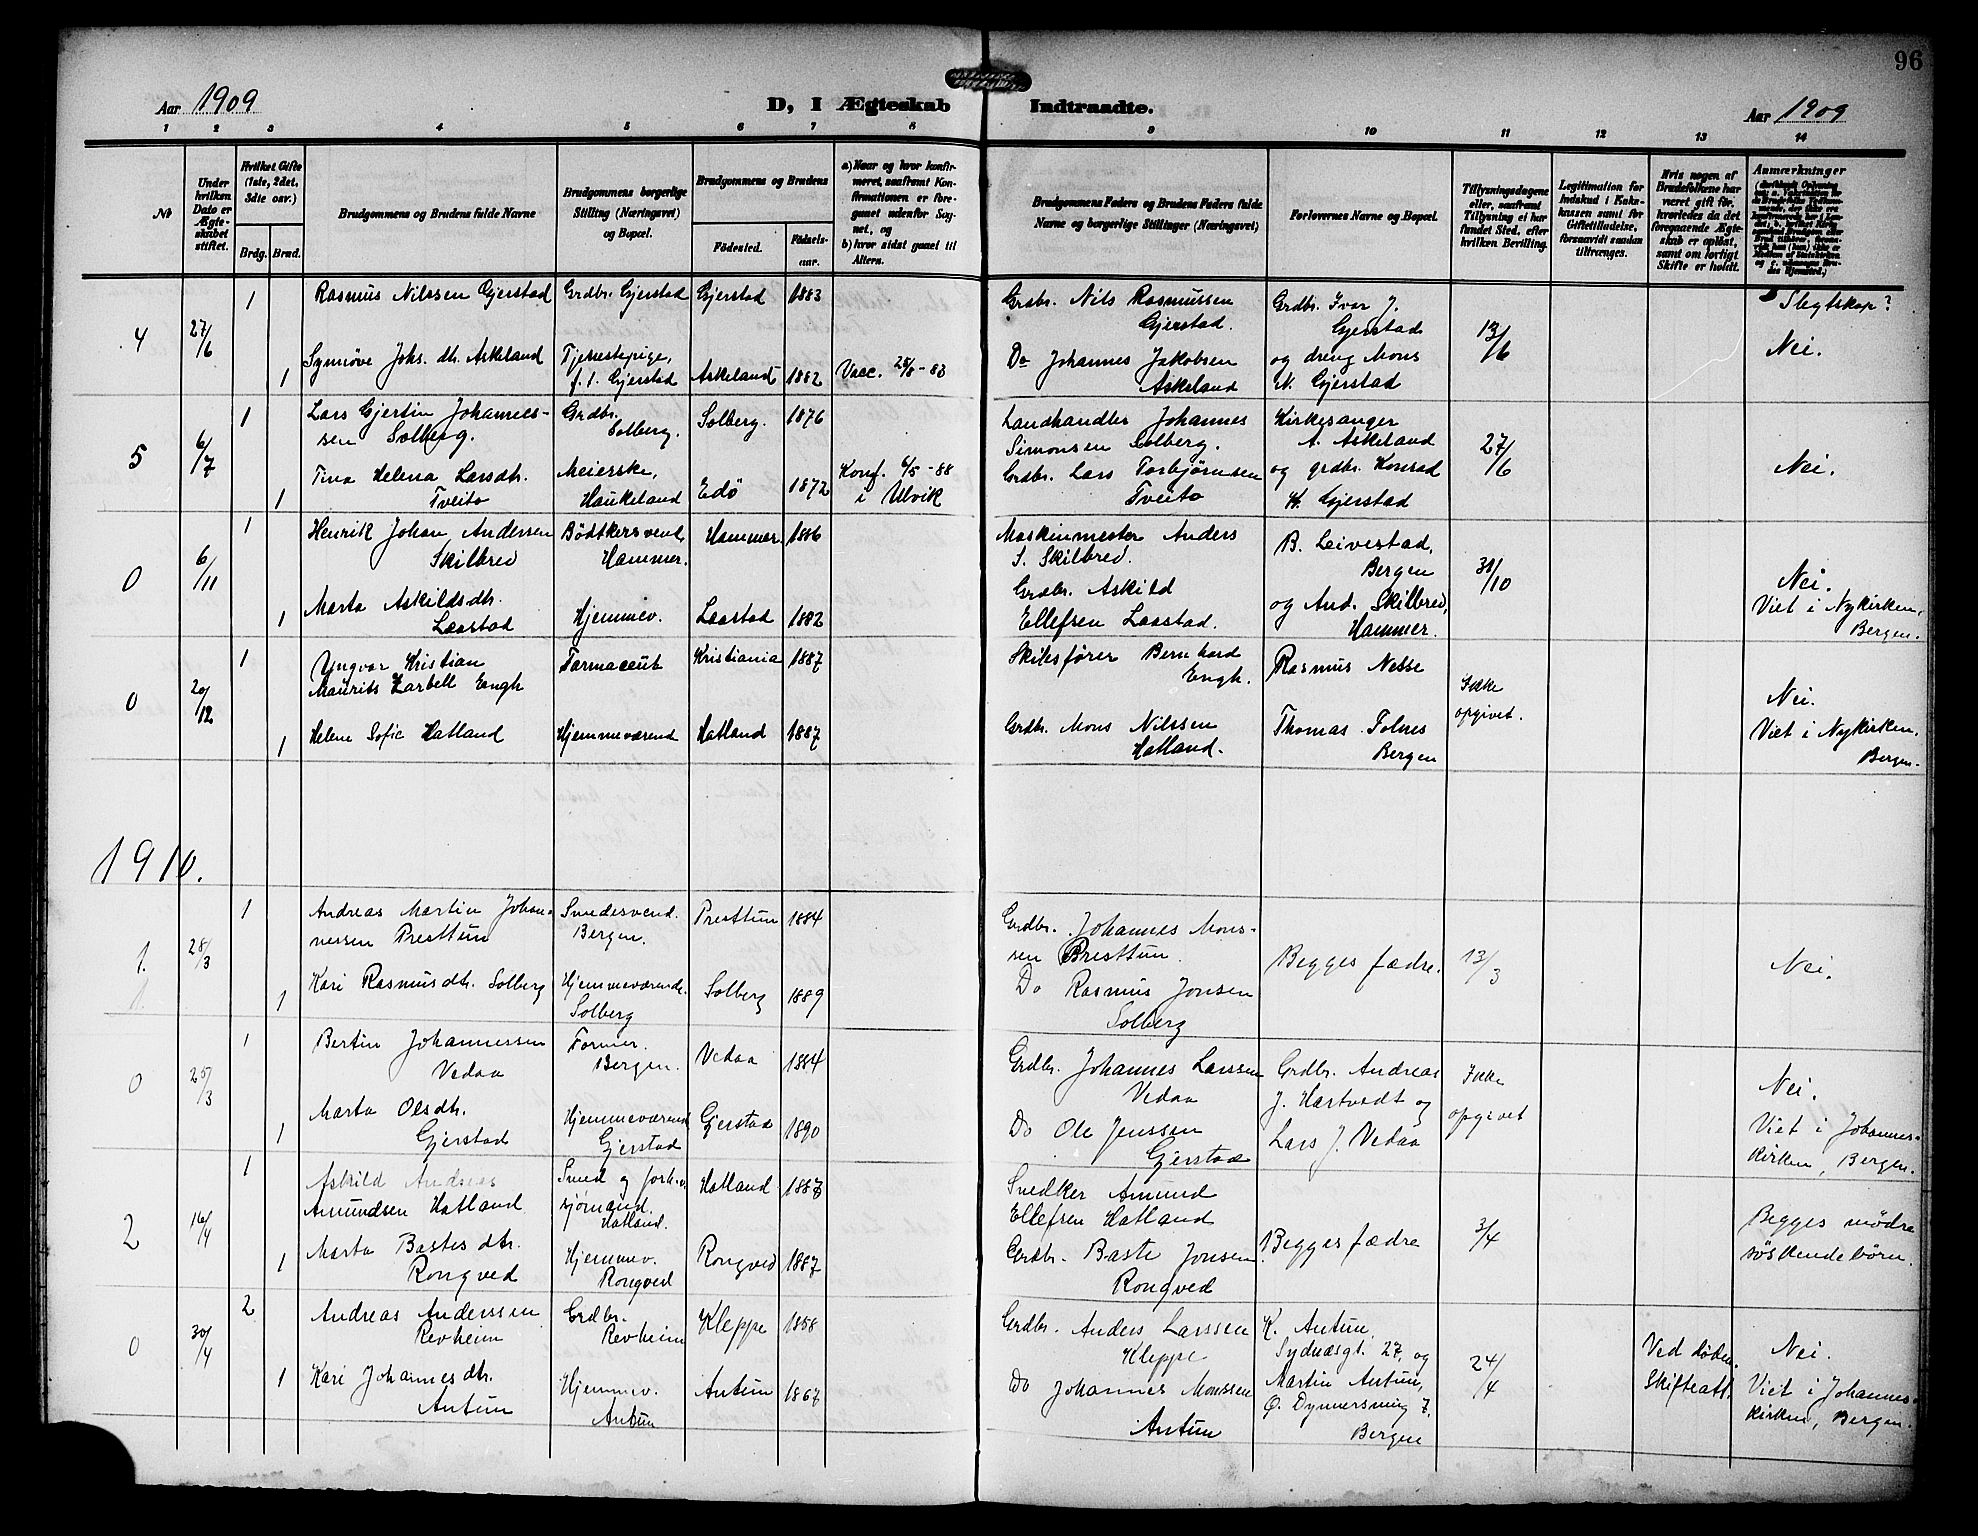 96
Aar 1909
D, I Ægteskab Indtraadte.
Aar 1909
1 2 3 4 5 6 7 8 9 10 11 12 13 14
No
Under hvilken Dato er Ægteskabet stiftet.
Hvilket Gifte (1ste, 2det, 3die osv.)
Brdg. Brud.
Brudgommens og Brudens fulde Navne
Brudgommens borgerlige Stilling (Næringsvei) og Bopæl.
Brudgommens og Brudens
Födested.
Födselsaar.
a) Naar og hvor konfirmeret, saafremt Konfirmationen er foregaaet udenfor Sognet, og
b) hvor sidst gaaet til Alters.
Brudgommens Faders og Brudens Faders fulde Navne og borgerlige Stillinger (Næringsvei)
Forlovernes Navne og Bopæl.
Tillysningsdagene eller, saafremt Tillysning ei har fundet Sted, efter hvilken Bevilling.
Legitimation for Indskud i Enkekassen samt for Giftetilladelse, forsaavidt saadan tiltrænges.
Hvis nogen af Brudefolkene har været gift før, hvorledes da det foregaaende Ægteskab er opløst, samt om lovligt Skifte er holdt.
Anmærkninger
4 27/6
1 Rasmus Nilssen Gjerstad Grdbr. Gjerstad Gjerstad 1883
Grdbr. Nils Rasmussen
Gjerstad.
Grdbr. Ivar J.
Gjerstad
13/6
Slegtskap?
1 Synnöve Johs. dtr. Askeland Tjenestepige,
f. t. Gjerstad Askeland 1882 Vacc. 25/8-83
Do Johannes Jakobsen
Askeland
og dreng Mons
N. Gjerstad
Nei.
5 6/7
1 Lars Gjertin Johannes-
sen Solberg.
Grdbr.
Solberg.
Solberg. 1876
Landhandler Johannes
Simonsen Solberg.
Kirkesanger
A. Askeland
27/6
1 Tina Helena Larsdtr.
Tveito
Meierske,
Haukeland
Edö 1872
Konf. 6/5-88
i Ulvik
Grdbr. Lars Torbjörnsen
Tveito
og grdbr. Konrad
H. Gjerstad
Nei.
0 6/11
1 Henrik Johan Andersen
Skilbred
Bödtkersvend
Hammer.
Hammer. 1886
Maskinmester Anders
S. Skilbred.
B. Leivestad,
Bergen
31/10
1 Marta Askildsdtr.
Laastad
Hjemmev. Laastad 1882
Grdbr. Askild
Ellefsen Laastad.
og And. Skilbred,
Hammer.
Nei.
Viet i Nykirken,
Bergen.
0 20/12
1 Yngvar Kristian
Maurits Harbell Engh
Farmaceut Kristiania 1887
Skibsförer Bernhard
Engh.
Rasmus Nesse
Ikke
opgivet.
1 Helene Sofie Hatland Hjemmeværend Hatland 1887
Grdbr. Mons Nilssen
Hatland.
Thomas Folnes
Bergen
Nei.
Viet i Nykirken.
Bergen.
1910.
1. 28/3
1.
1 Andreas Martin Johan-
nessen Presttun
Snedesvend.
Bergen.
Presttun 1884
Grdbr. Johannes Mons-
sen Presttun.
Begges fædre.
13/3
Nei.
1 Kari Rasmusdtr. Solberg Hjemmeværende.
Solberg
Solberg 1889
Do Rasmus Jonsen
Solberg
0 25/3
1 Bertin Johannessen
Vedaa
Former.
Bergen.
Vedaa 1884
Grdbr. Johannes Larssen
Vedaa
Grdbr. Andreas
J. Hartvedt og
Lars J. Vedaa
Ikke
opgivet
1 Marta Olsdtr.
Gjerstad
Hjemmeværend
Gjerstad
Gjerstad 1890
Do Ole Jenssen
Gjerstad
Nei.
Viet i Johannes-
kirken, Bergen.
2 16/4
1 Askild Andreas
Amundsen Hatland
Smed og forh.v.
sjömand.
Hatland.
Hatland 1887
Snedker Amund
Ellefsen Hatland
Begges fædre
3/4
1 Marta Bastes dtr.
Rongved
Hjemmev.
Rongved
Rongved 1887
Grdbr. Baste Jonsen
Rongved
Begges mödre
söskendebörn.
0 30/4
2 Andreas Anderssen
Revheim
Grdbr.
Revheim
Kleppe 1858
Grdbr. Anders Larssen
Kleppe
K. Antun,
Sydnæsgt. 27, og
24/4
Ved döden.
Skifteatt.
1 Kari Johannesdtr.
Antun
Hjemmev.
Antun
Antun 1867
Do Johannes Monssen
Antun
Martin Antun,
Bergen
Nei.
Viet i Johannes-
kirken, Bergen.